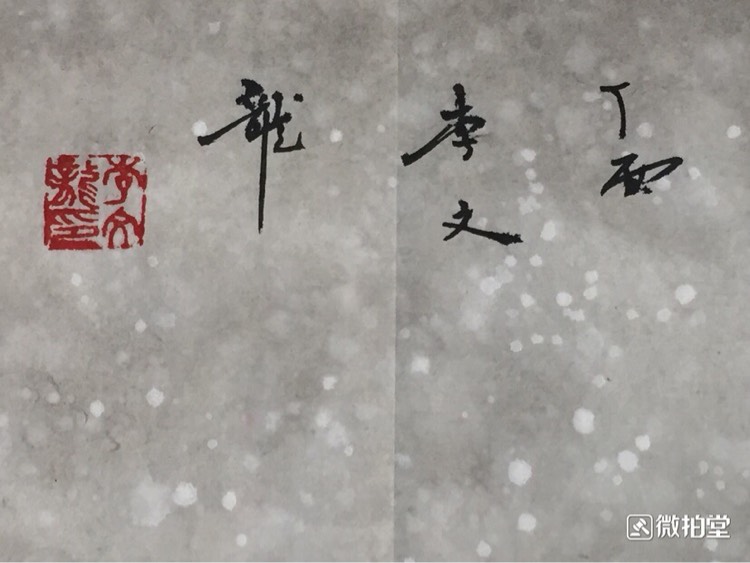 丁酉
李文
龍
李文
龍印
微拍堂